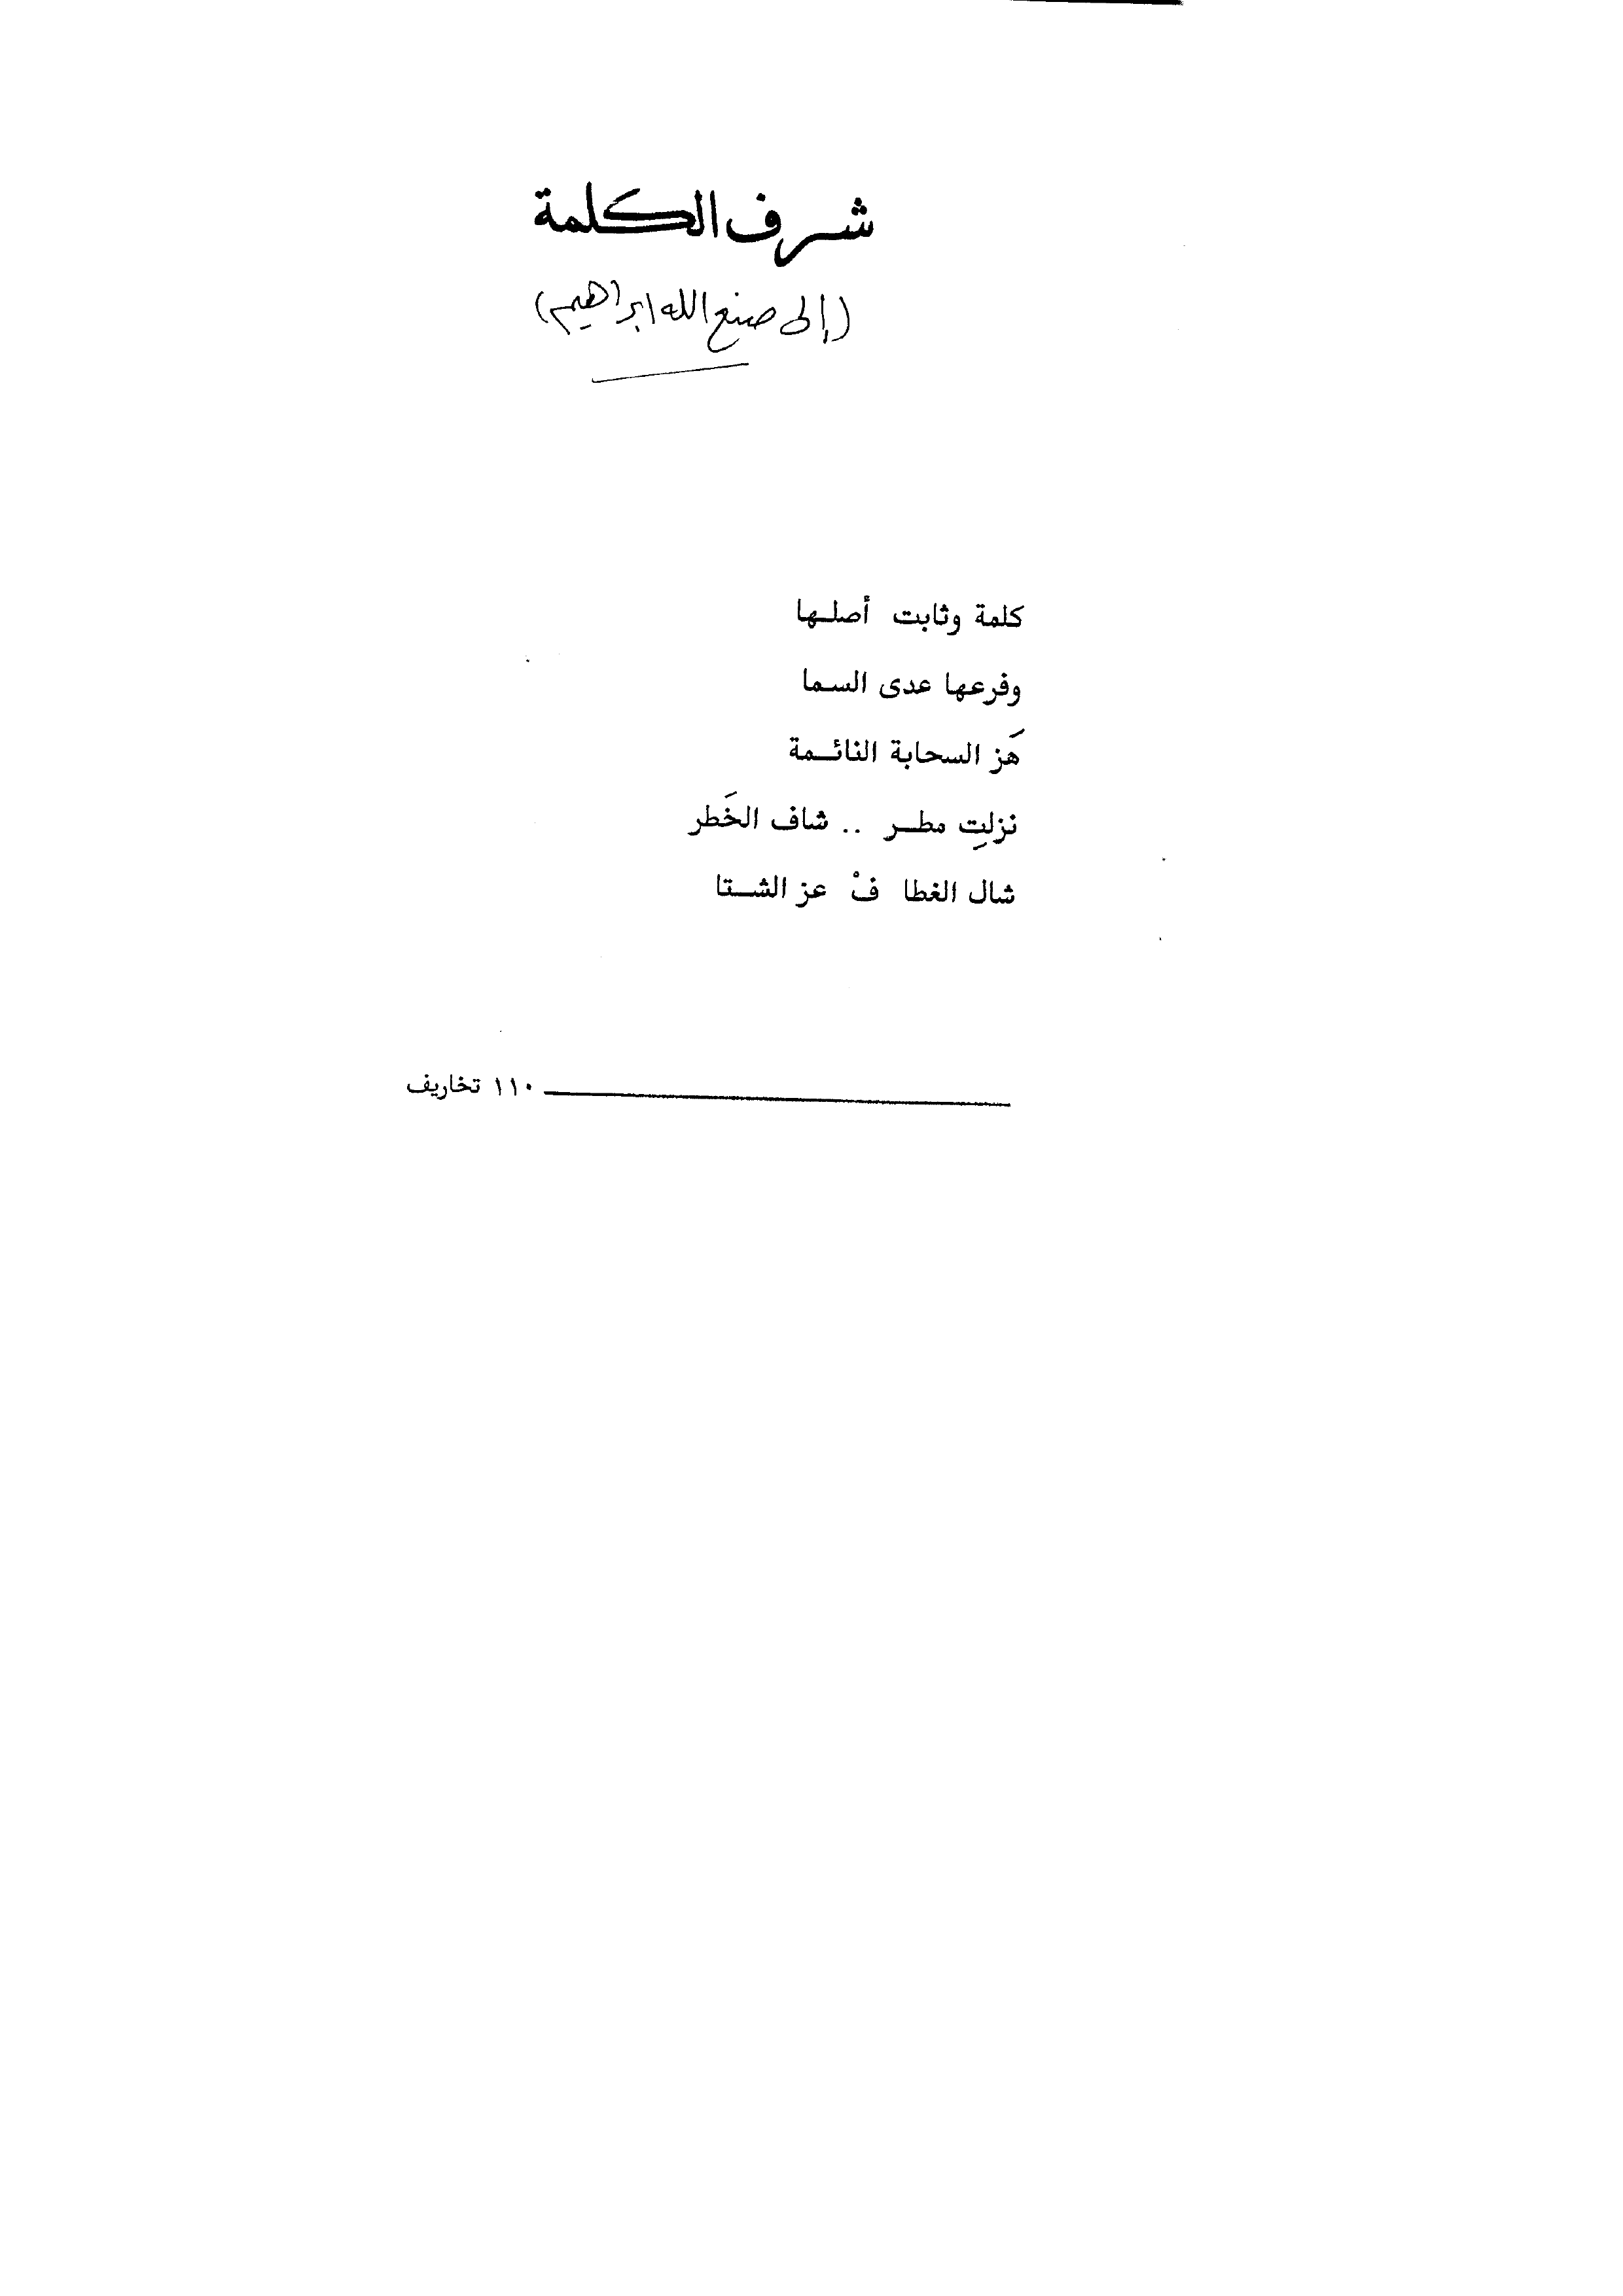 شرف الكلمة
(إلى صنع الله ابراهيم)
كلمة وثابت أصلها
وفرعها عدى السما
هَز السحابة النائمة
نزلتِ مطر .. شاف الخَطر
شال الغطا فْ عز الشتا
١١٠ تخاريف